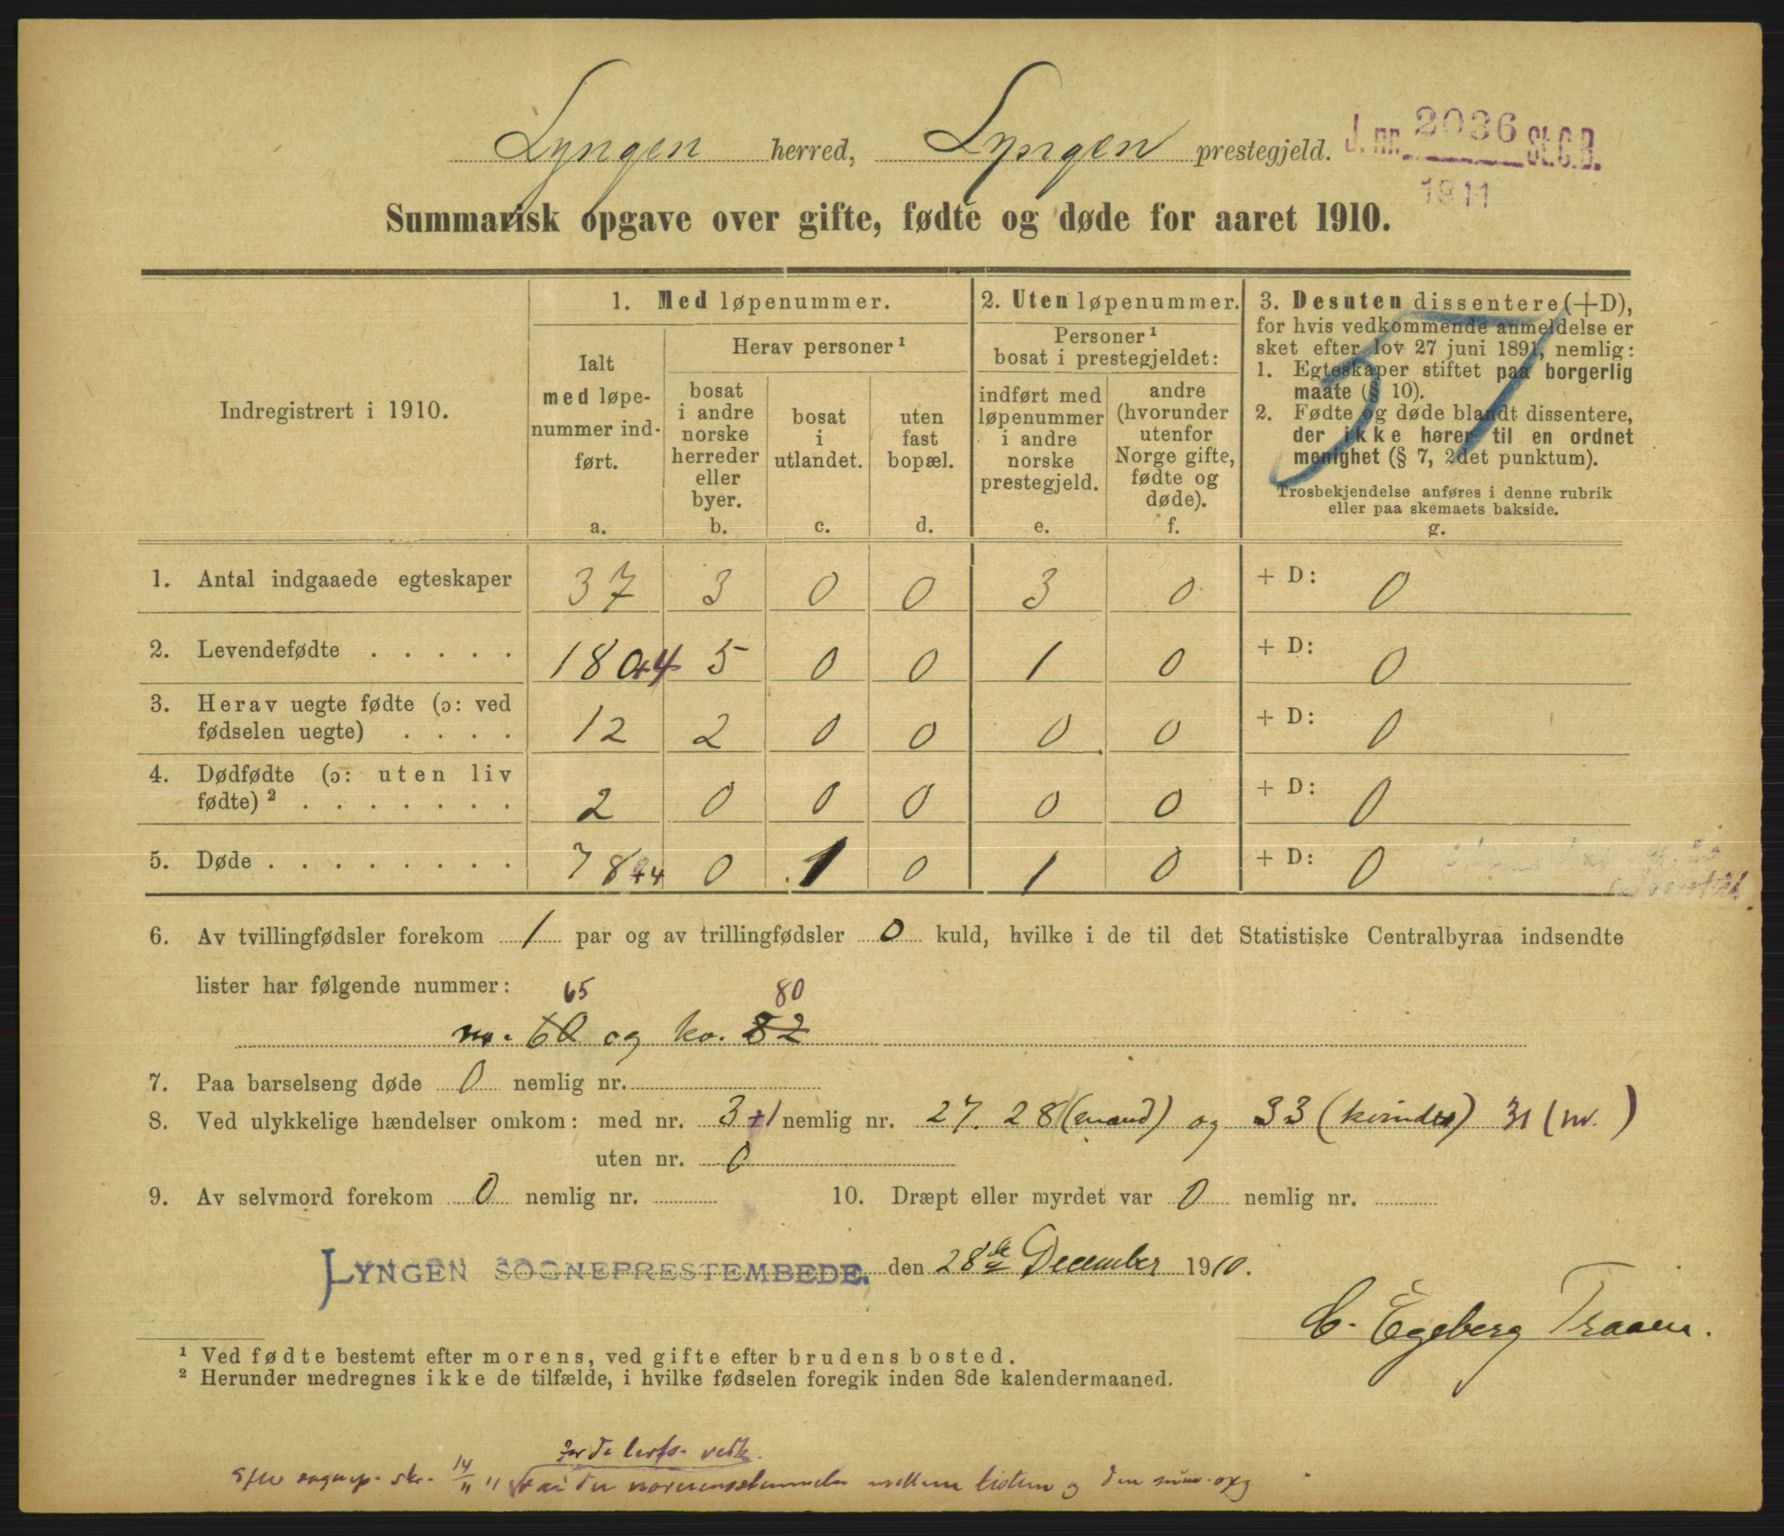 Lyngen herred, Lyngen prestegjeld.
J. nr. 2036 St. C. B.
1911
Summarisk opgave over gifte, fødte og døde for aaret 1910.
Indregistrert i 1910.
1. Med løpenummer.
Ialt
med løpe-
nummer ind-
ført.
a.
Herav personer ¹
bosat
i andre
norske
herreder
eller
byer.
b.
bosat
i
utlandet.
c.
uten
fast
bopæl.
d.
2. Uten løpenummer.
Personer ¹
bosat i prestegjeldet:
indført med
løpenummer
i andre
norske
prestegjeld.
e.
andre
(hvorunder
utenfor
Norge gifte,
fødte og
døde).
f.
3. Desuten dissentere (+D),
for hvis vedkommende anmeldelse er
sket efter lov 27 juni 1891, nemlig:
1. Egteskaper stiftet paa borgerlig
maate (§ 10).
2. Fødte og døde blandt dissentere,
der ikke hører til en ordnet
menighet (§ 7, 2det punktum).
Trosbekjendelse anføres i denne rubrik
eller paa skemaets bakside.
g.
1. Antal indgaaede egteskaper 37 3 0 0 3 0 + D: 0
2. Levendefødte . . . . . 180+4 5 0 0 1 0 + D: 0
3. Herav uegte fødte (ɔ: ved
fødselen uegte) . . . . 12 2 0 0 0 0 + D: 0
4. Dødfødte (ɔ: uten liv
fødte) ² . . . . . . . 2 0 0 0 0 0 + D: 0
5. Døde . . . . . . . . 78+4 0 1 0 1 0 + D: 0
6. Av tvillingfødsler forekom 1 par og av trillingfødsler 0 kuld, hvilke i de til det Statistiske Centralbyraa indsendte
lister har følgende nummer:
65 80
m. 60 og kv. 82
7. Paa barselseng døde 0 nemlig nr.
8. Ved ulykkelige hændelser omkom: med nr. 3+1 nemlig nr. 27. 28 (mænd) og 33 (kvinder) 31 (m.)
uten nr. 0
9. Av selvmord forekom 0 nemlig nr.
10. Dræpt eller myrdet var 0 nemlig nr.
LYNGEN SOGNEPRESTEMBEDE. den 28de December 1910.
C. Egeberg Traaen.
¹ Ved fødte bestemt efter morens, ved gifte efter brudens bosted.
² Herunder medregnes ikke de tilfælde, i hvilke fødselen foregik inden 8de kalendermaaned.